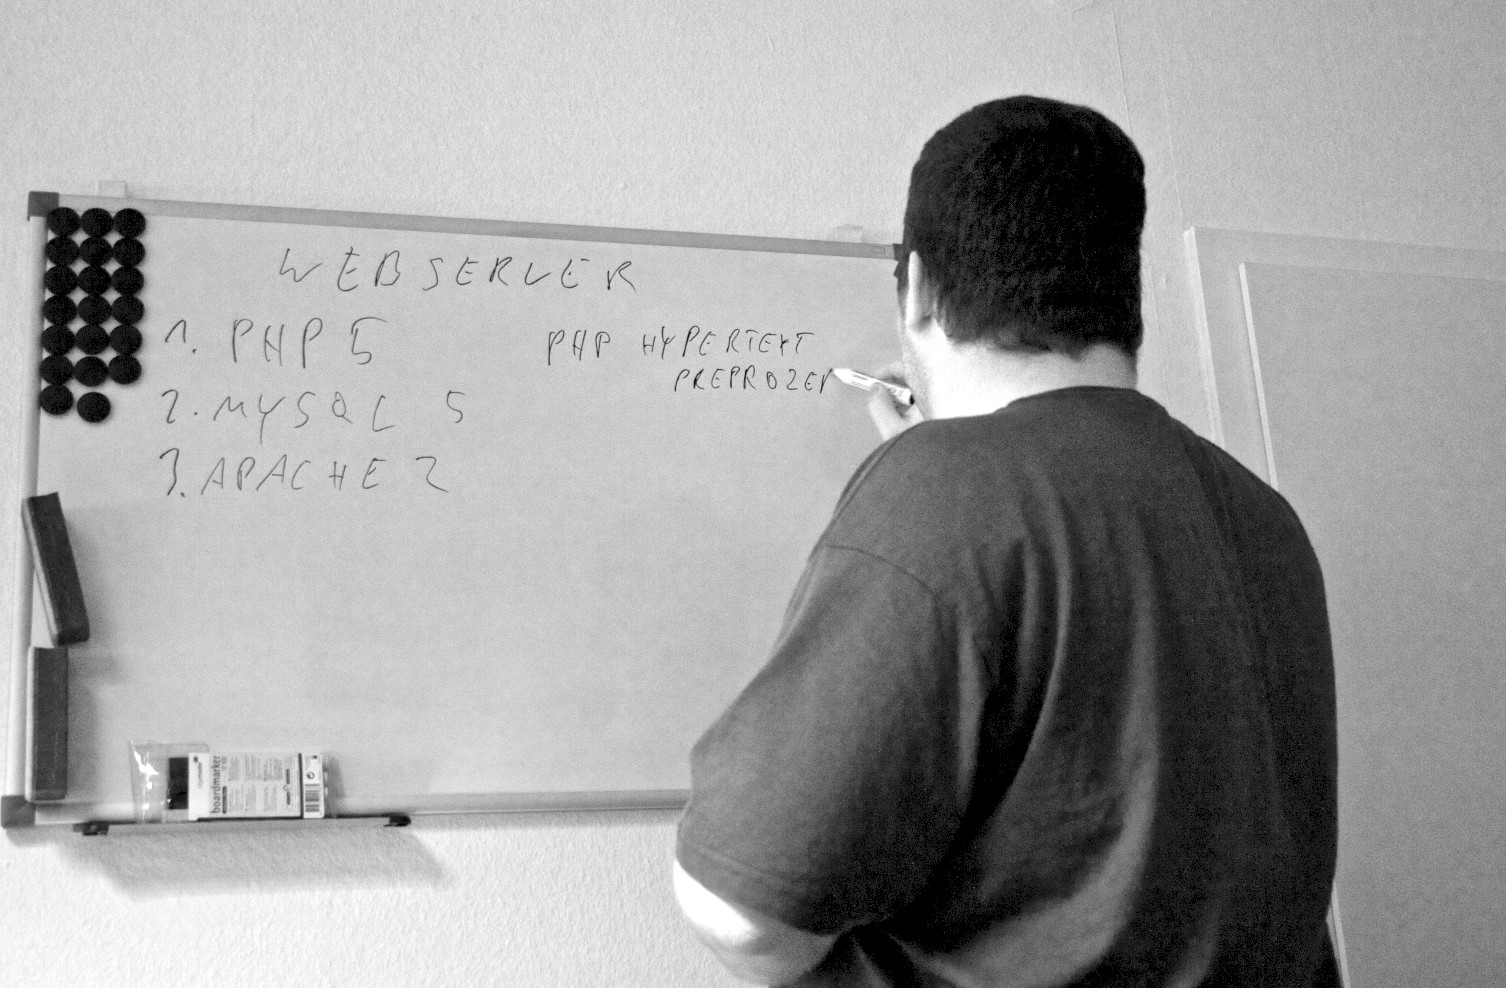 WEBSERVER
1. PHP 5
PHP HYPERTEXT
PREPROZE
2. MYSQL 5
3. APACHE 2
boardmarker